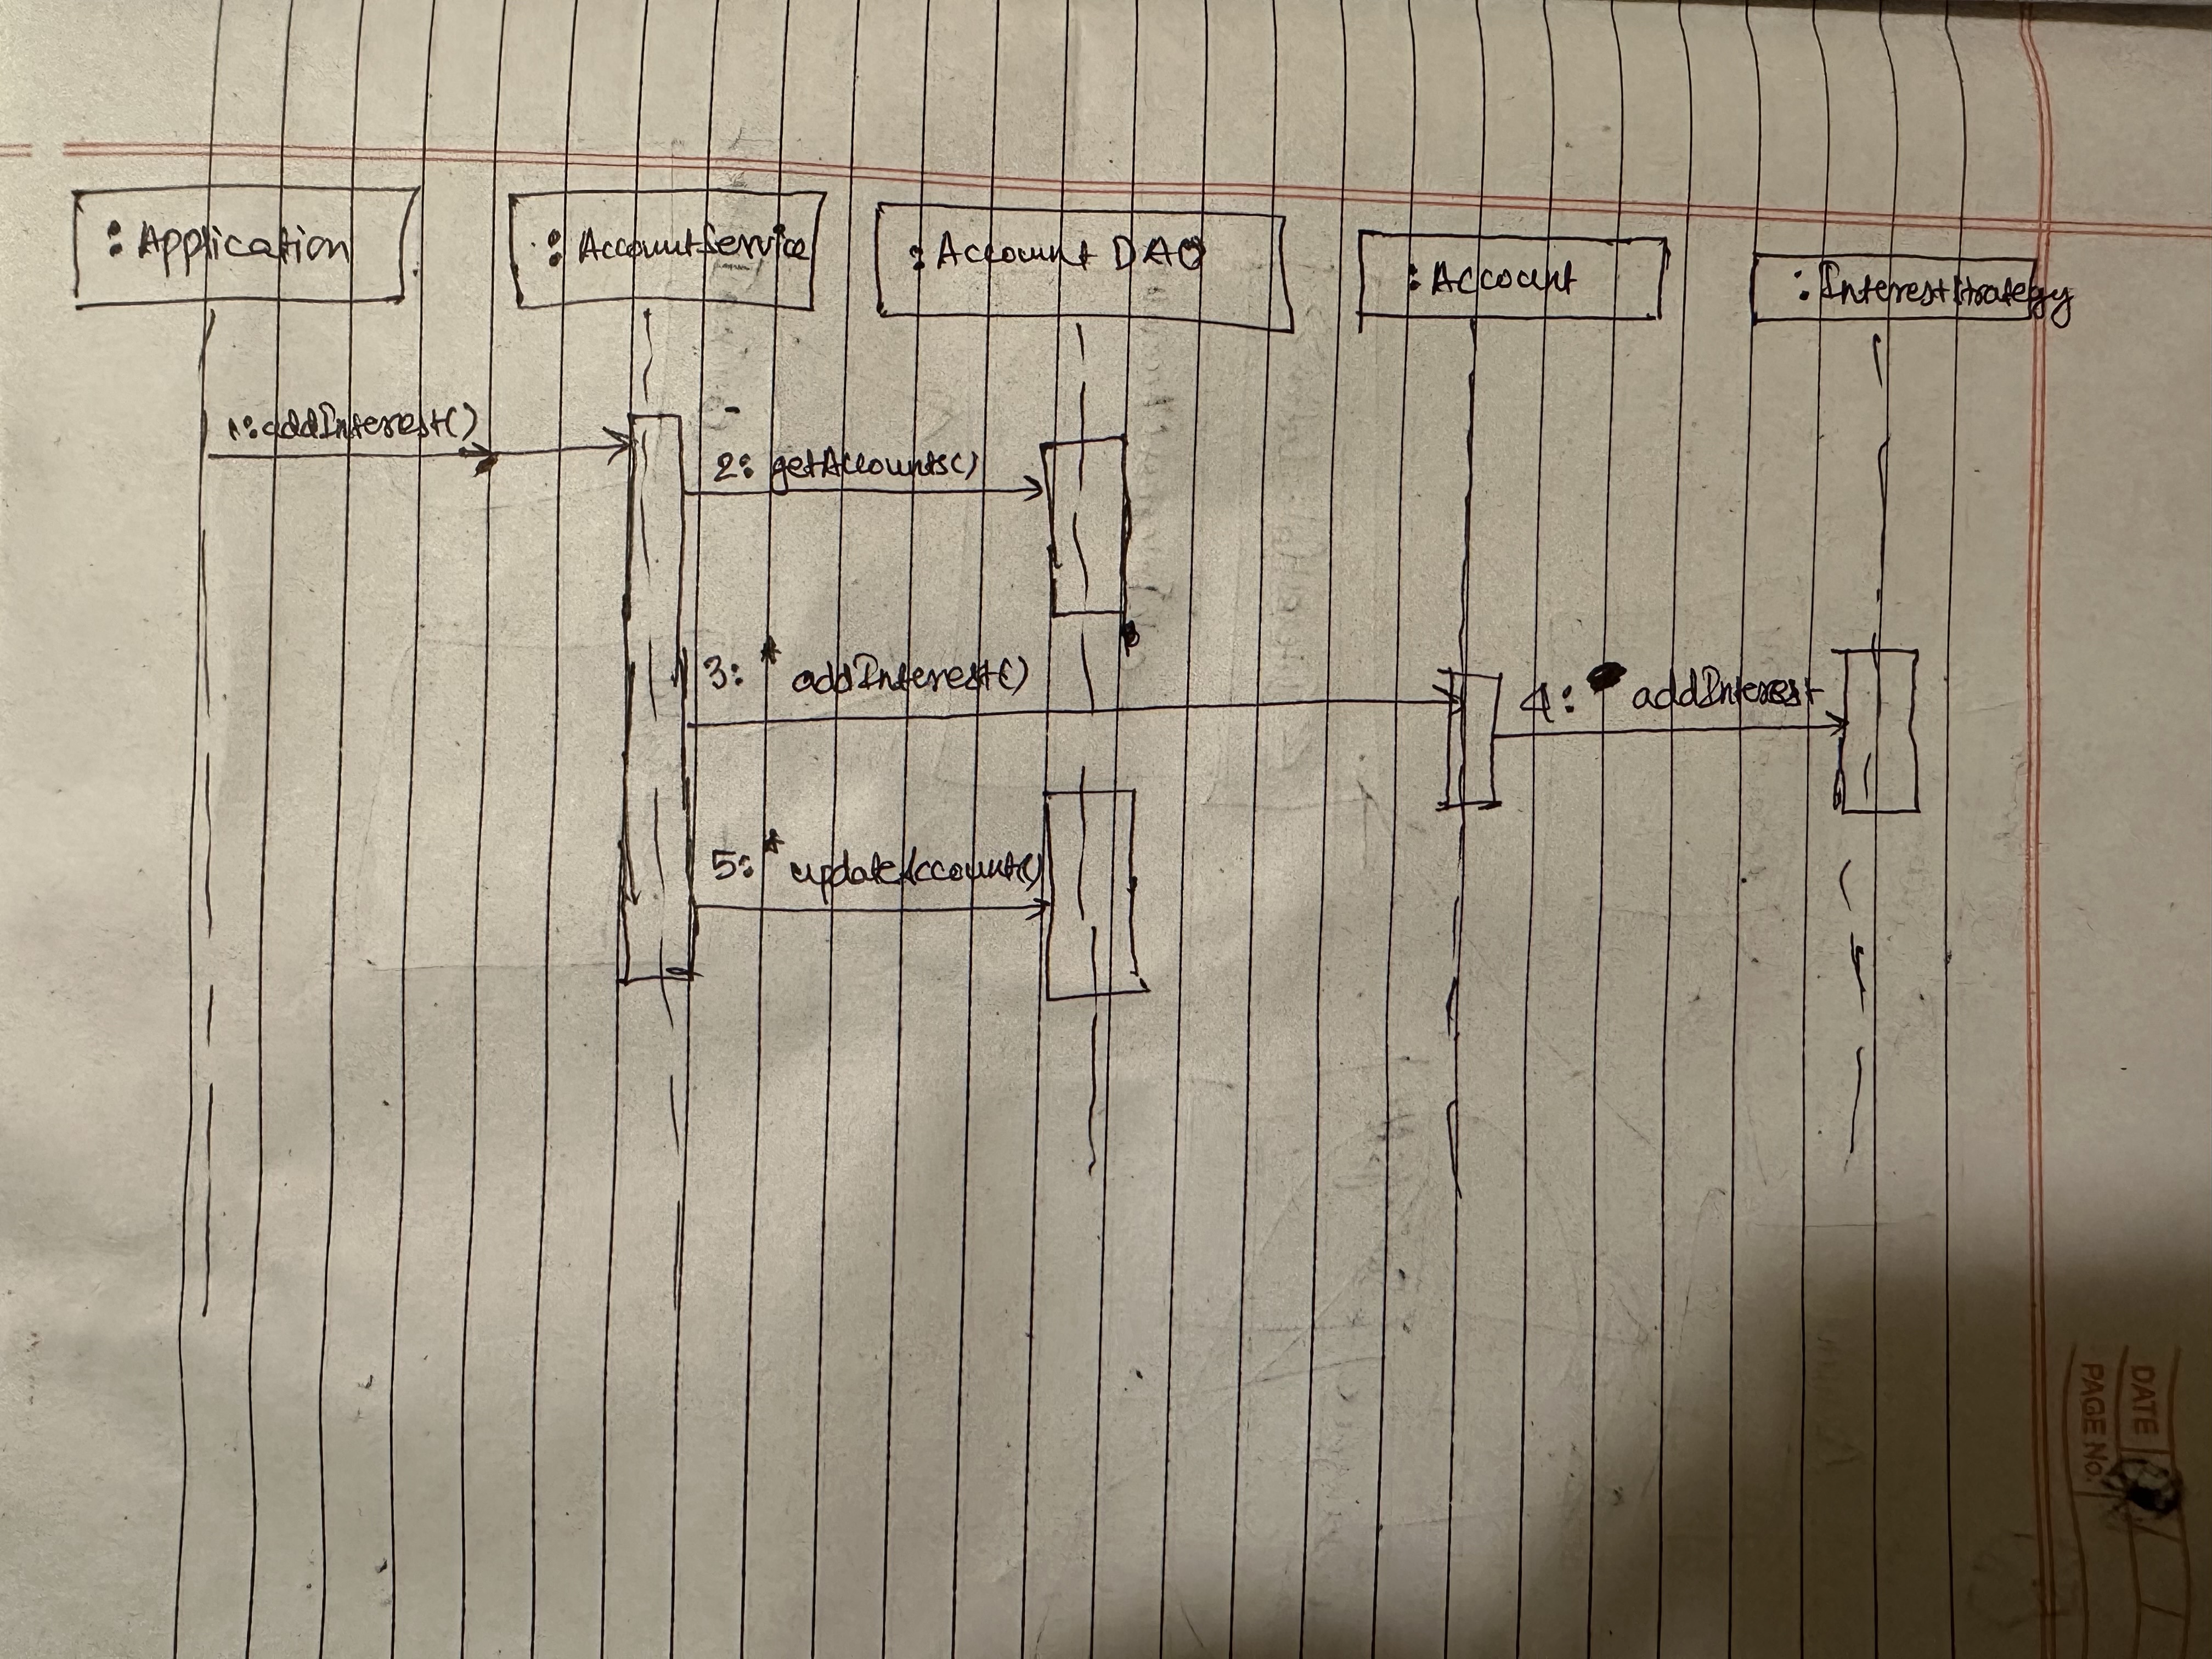 :Application
:AccountService
:Account DAO
:Account
:InterestStrategy
1:addInterest()
2: getAccounts()
3: * addInterest()
4: addInterest
5: * updateAccount()
DATE
PAGE No.